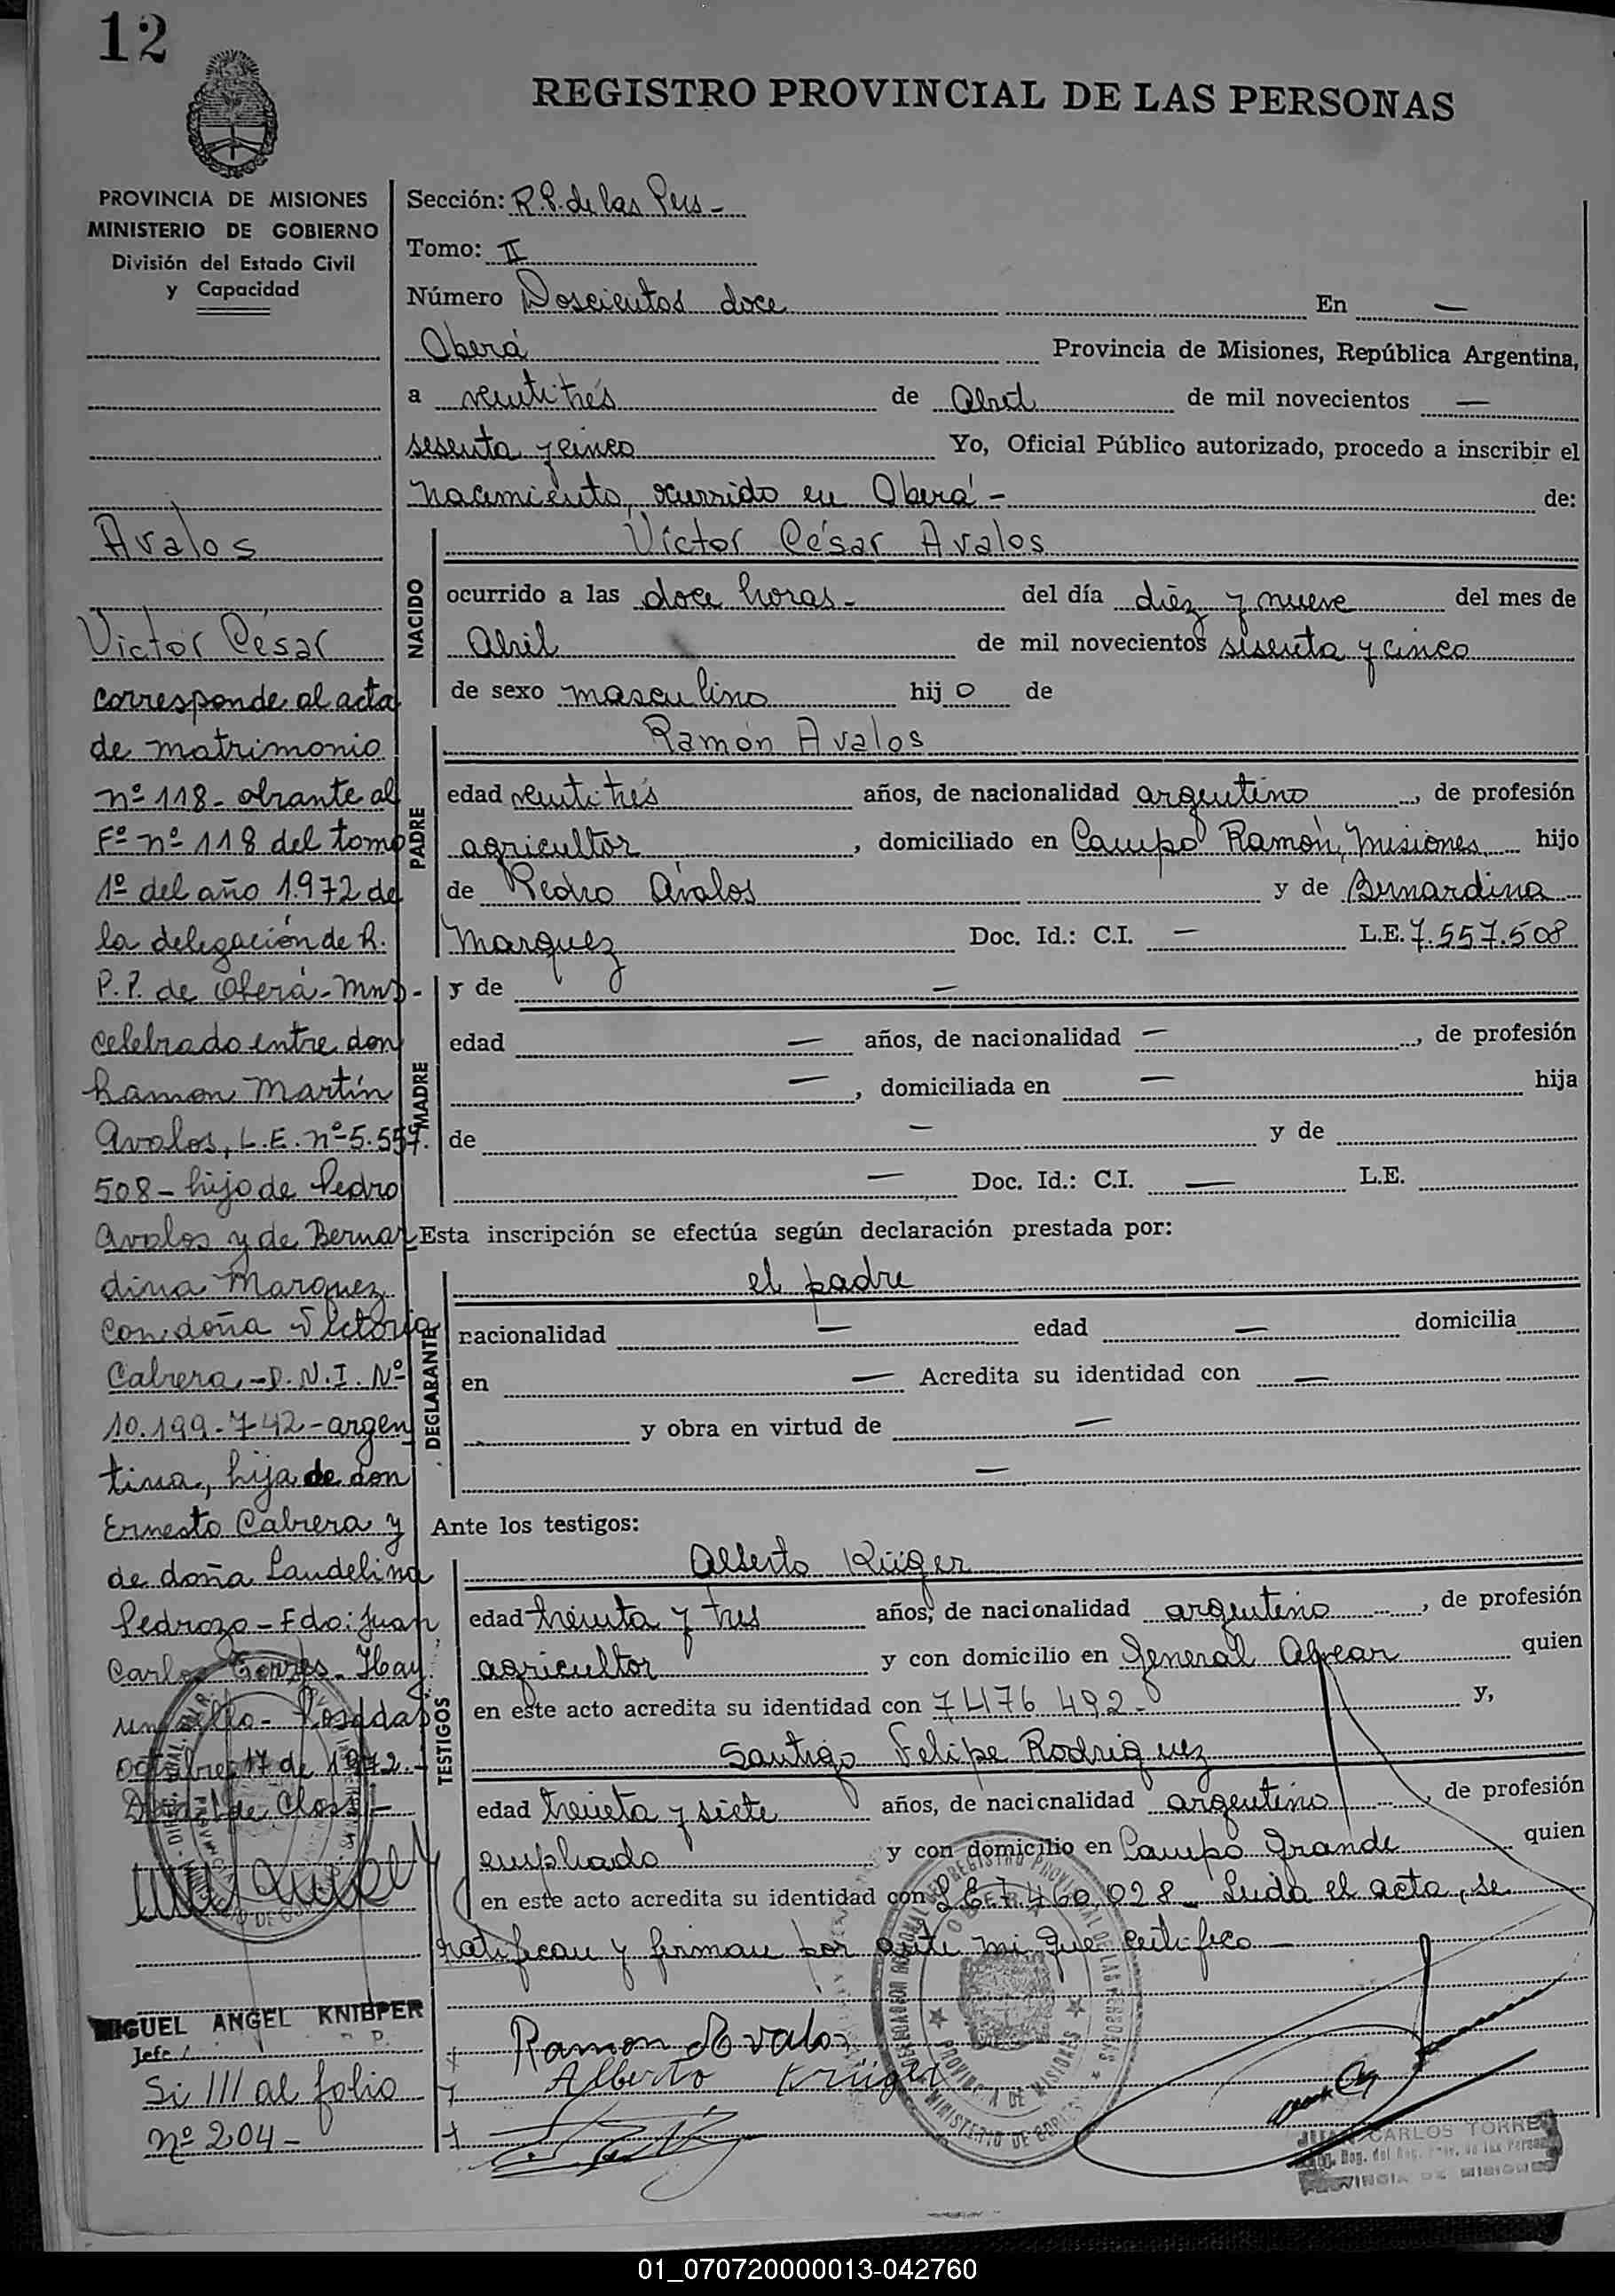 12
REGISTRO PROVINCIAL DE LAS PERSONAS
PROVINCIA DE MISIONES
MINISTERIO DE GOBIERNO
División del Estado Civil
y Capacidad
Avalos
Victor César
corresponde al acta
de matrimonio
nº 118 - obrante al
Fº nº 118 del tomo
1º del año 1.972 de
la delegación de R.
P.P. de Oberá - Mns -
celebrado entre don
Ramon Martín
Avalos, L.E. nº 5.557.
508 - hijo de Pedro
Avalos y de Bernar
dina Marquez
con doña Victoria
Cabrera, - D.N.I. Nº
10.199.742 - argen
tina, hija de don
Ernesto Cabrera y
de doña Laudelina
Pedrozo - Fdo: Juan
Carlos Torres - Hay
un sello - Posadas
Octubre 17 de 1972. -
de
MIGUEL ANGEL KNIEPER
Jefe
Si III al folio
nº 204 -
Sección: R.P. de las Pers -
Tomo: II
Número Doscientos doce En —
Oberá Provincia de Misiones, República Argentina,
a veintitrés de Abril de mil novecientos —
sesenta y cinco Yo, Oficial Público autorizado, procedo a inscribir el
nacimiento, ocurrido en Oberá - de:
NACIDO
Víctor César Avalos
ocurrido a las doce horas - del día diez y nueve del mes de
Abril de mil novecientos sesenta y cinco
de sexo masculino hijo de
PADRE
Ramón Avalos
edad veintitrés años, de nacionalidad argentino, de profesión
agricultor, domiciliado en Campo Ramón, Misiones, hijo
de Pedro Avalos y de Bernardina
Marquez Doc. Id.: C.I. — L.E. 7.557.508
MADRE
y de —
edad — años, de nacionalidad —, de profesión
—, domiciliada en — hija
de — y de
— Doc. Id.: C.I. — L.E.
Esta inscripción se efectúa según declaración prestada por:
DEGLARANTE
el padre
nacionalidad — edad — domicilia
en — Acredita su identidad con —
y obra en virtud de —
—
Ante los testigos:
TESTIGOS
Alberto Krüger
edad treinta y tres años, de nacionalidad argentino, de profesión
agricultor y con domicilio en General Alvear quien
en este acto acredita su identidad con 7476 492 - y,
Santigo Felipe Rodriguez
edad treinta y siete años, de nacicnalidad argentino, de profesión
empleado y con domicilio en Campo Grande quien
en este acto acredita su identidad con L.E 7.460.028 - Leida el acta, se
ratifican y firman por ante mi que certifico —
Ramon Avalos
Alberto Krüger
DELEGACION REGIONAL DEL REGISTRO PROVINCIAL DE LAS PERSONAS
OBERA
PROVINCIA DE MISIONES
MINISTERIO DE GOBIERNO
JUAN CARLOS TORRES
PROVINCIA DE MISIONES
01_070720000013-042760